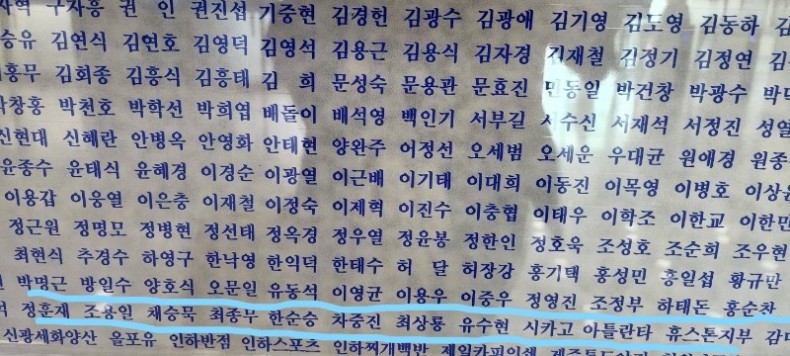 구자흥 권 인 권진섭 기중현 김경헌 김광수 김광애 김기영 김도영 김동하
김연식 김연호 김영덕 김영석 김용근 김용식 김자경 김재철 김정기 김정연
김회종 김흥식 김흥태 김 희 문성숙 문용관 문효진 민동일 박건창 박광수
박창홍 박천호 박학선 박희엽 배돌이 배석영 백인기 서부길 서수신 서재석 서정진
신현대 신혜란 안병옥 안영화 안태현 양완주 어정선 오세범 오세운 우대균 원애경
윤종수 윤태식 윤혜경 이경순 이광열 이근배 이기태 이대희 이동진 이목영 이병호
이용갑 이웅열 이은충 이재철 이정숙 이제혁 이진수 이충협 이태우 이학조 이한교
정근원 정명모 정병현 정선태 정옥경 정우열 정윤봉 정한인 정호욱 조성호 조순희 조우현
최현식 추경수 하영구 한낙영 한익덕 한태수 허 달 허장강 홍기택 홍성민 홍일섭 황규만
박명근 방일수 양호식 오문일 유동석 이영균 이용우 이중우 정영진 조정부 하태돈 홍순찬
정훈재 조용일 채승묵 최종무 한순승 차중진 최상룡 유수현 시카고 아틀란타 휴스톤지부
신광세화양산 올포유 인하반점 인하스포츠 인하찌개백반